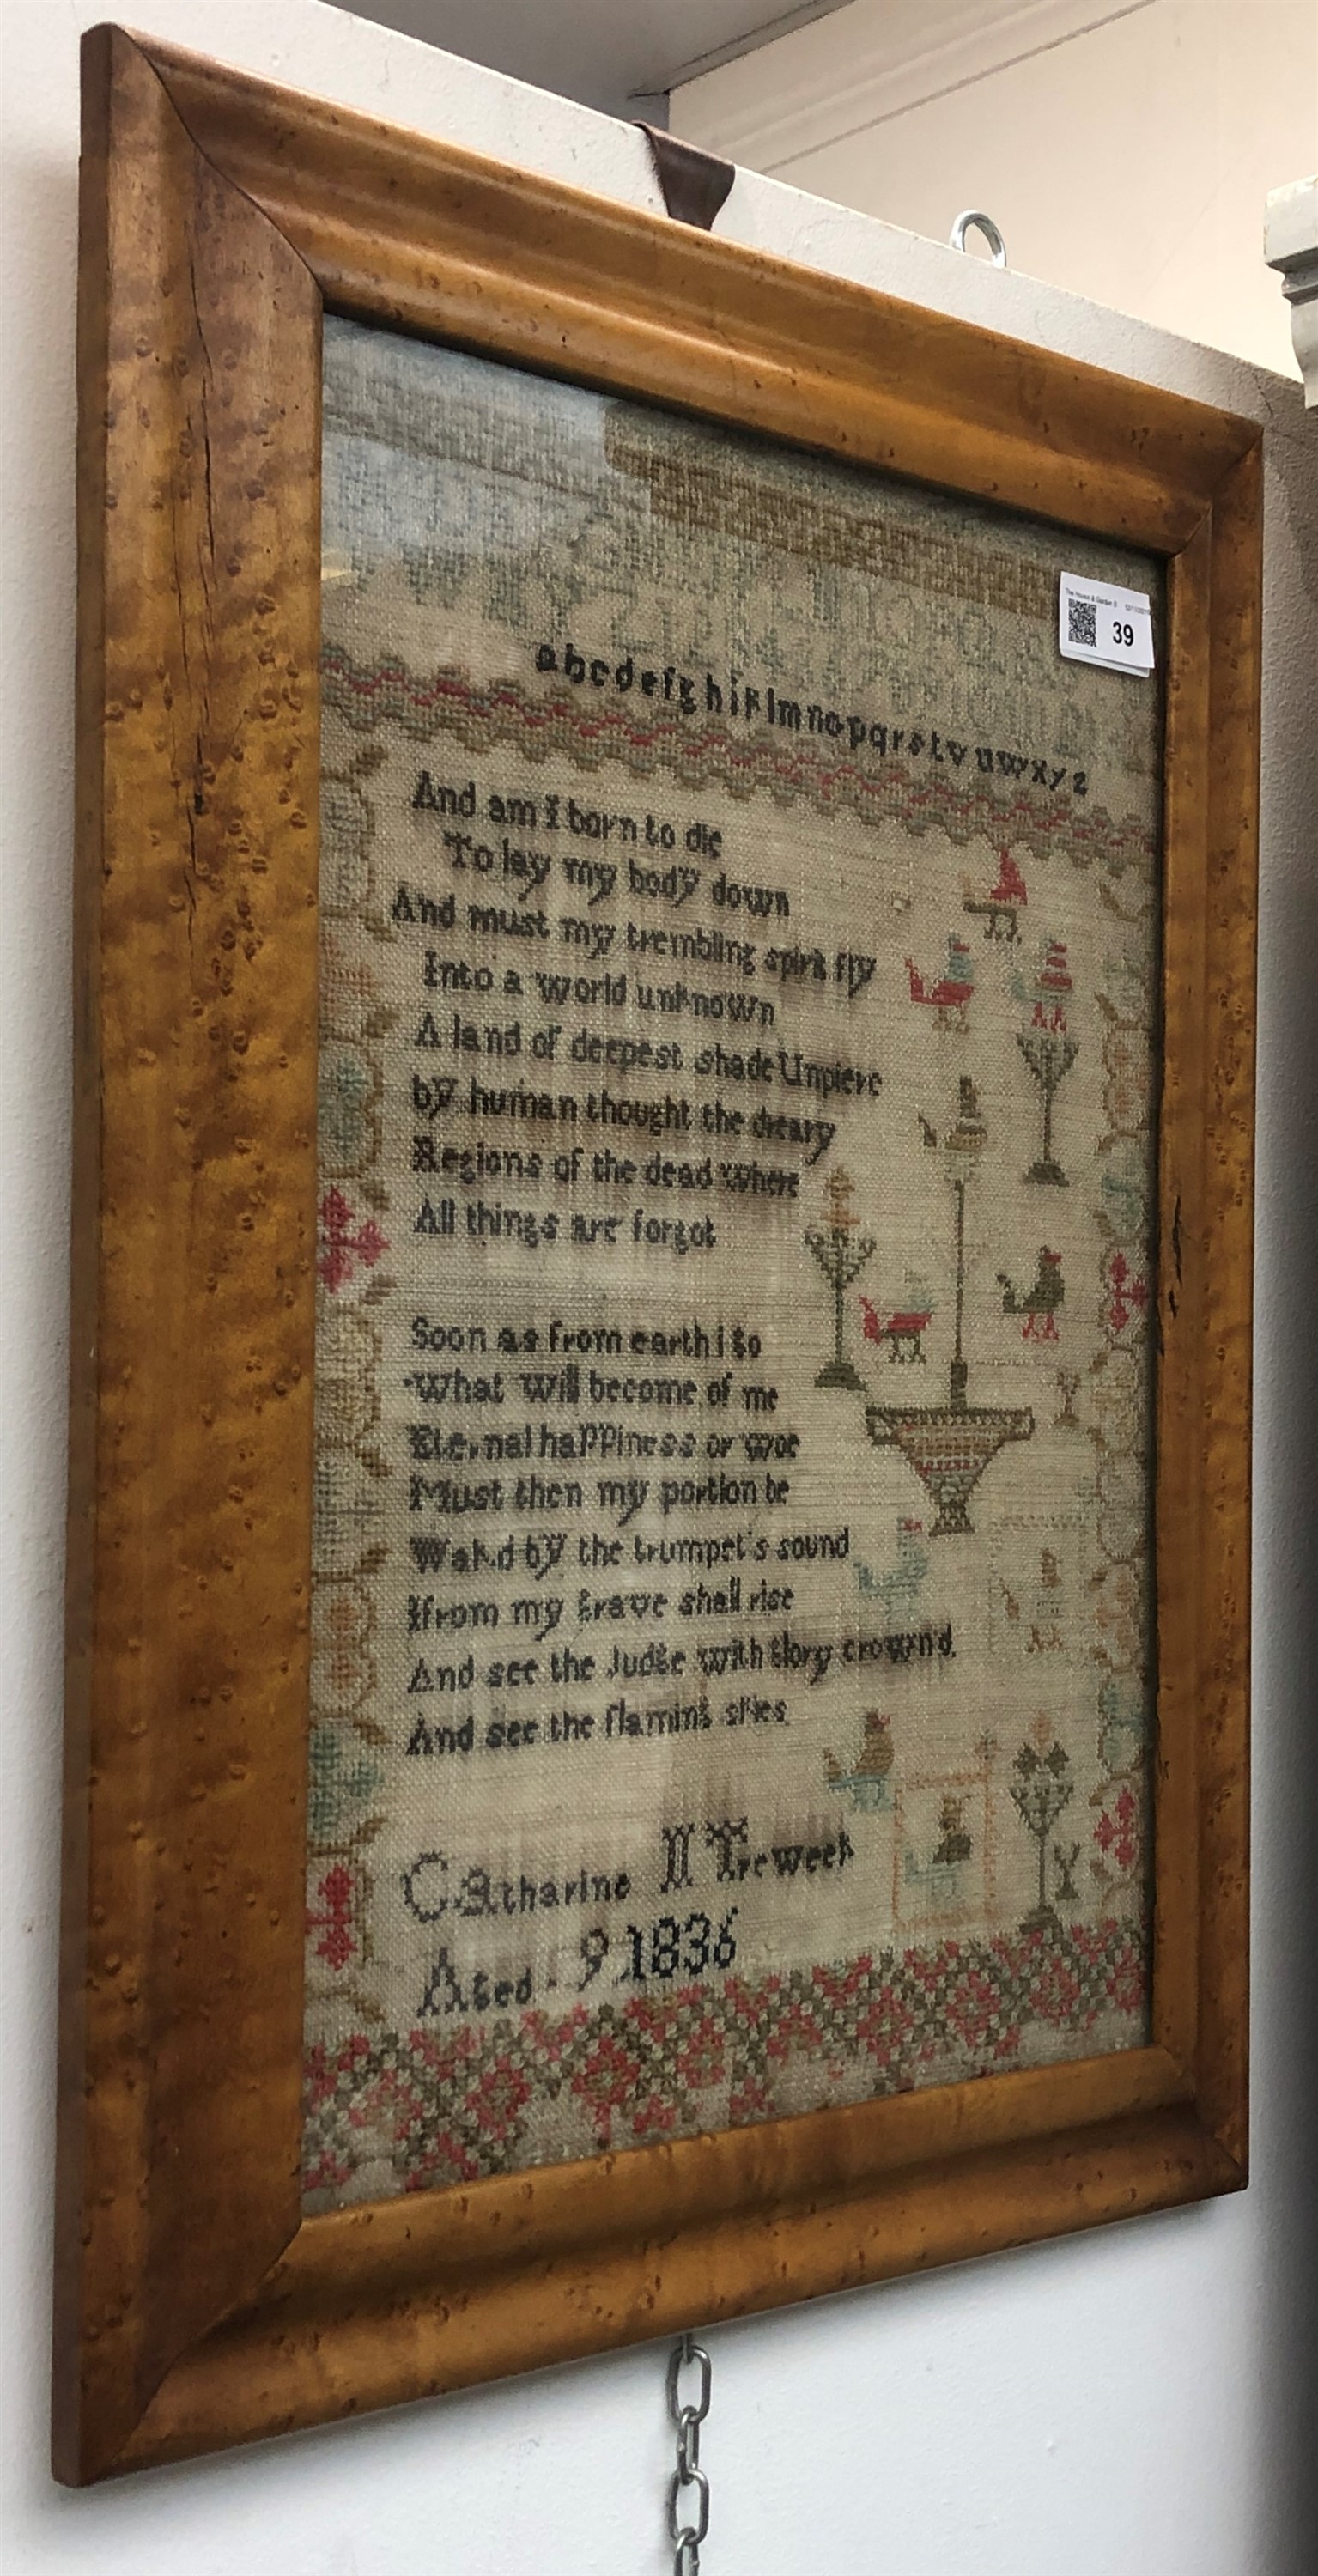 The House & Garden
39
abcdefghiklmnopqrstvuwxyz
And am I born to die
To lay my body down
And must my trembling spirit fly
Into a world unknown
A land of deepest shade Unpierc
by human thought the dreary
Regions of the dead where
All things are forgot
Soon as from earth i go
What will become of me
Eternal happiness or woe
Must then my portion be
Wak.d by the trumpet's sound
I from my grave shall rise
And see the Judge with glory crown'd.
And see the flaming skies
Catharine Treweek
Aged 9 1836